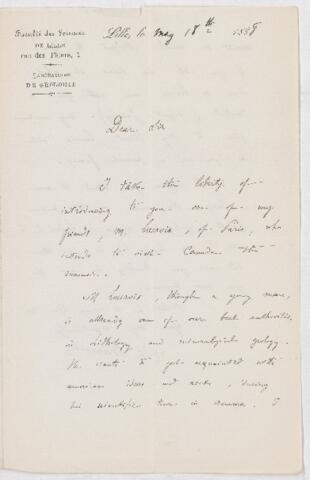 Faculté des Sciences
DE LILLE
rue des Fleurs, 2
LABORATOIRE
DE GÉOLOGIE
Lille, le may 18th 1888
Dear Sir
I take the liberty of
introducing to you one of my
friends, M. Lacroix, of Paris, who
intends to visit Canada this
summer.
M Lacroix, though a young man,
is allready one of our best authorities
in lithology and mineralogical geology.
He wants to get acquainted with
american ideas and rocks, during
his scientific tour in America. I